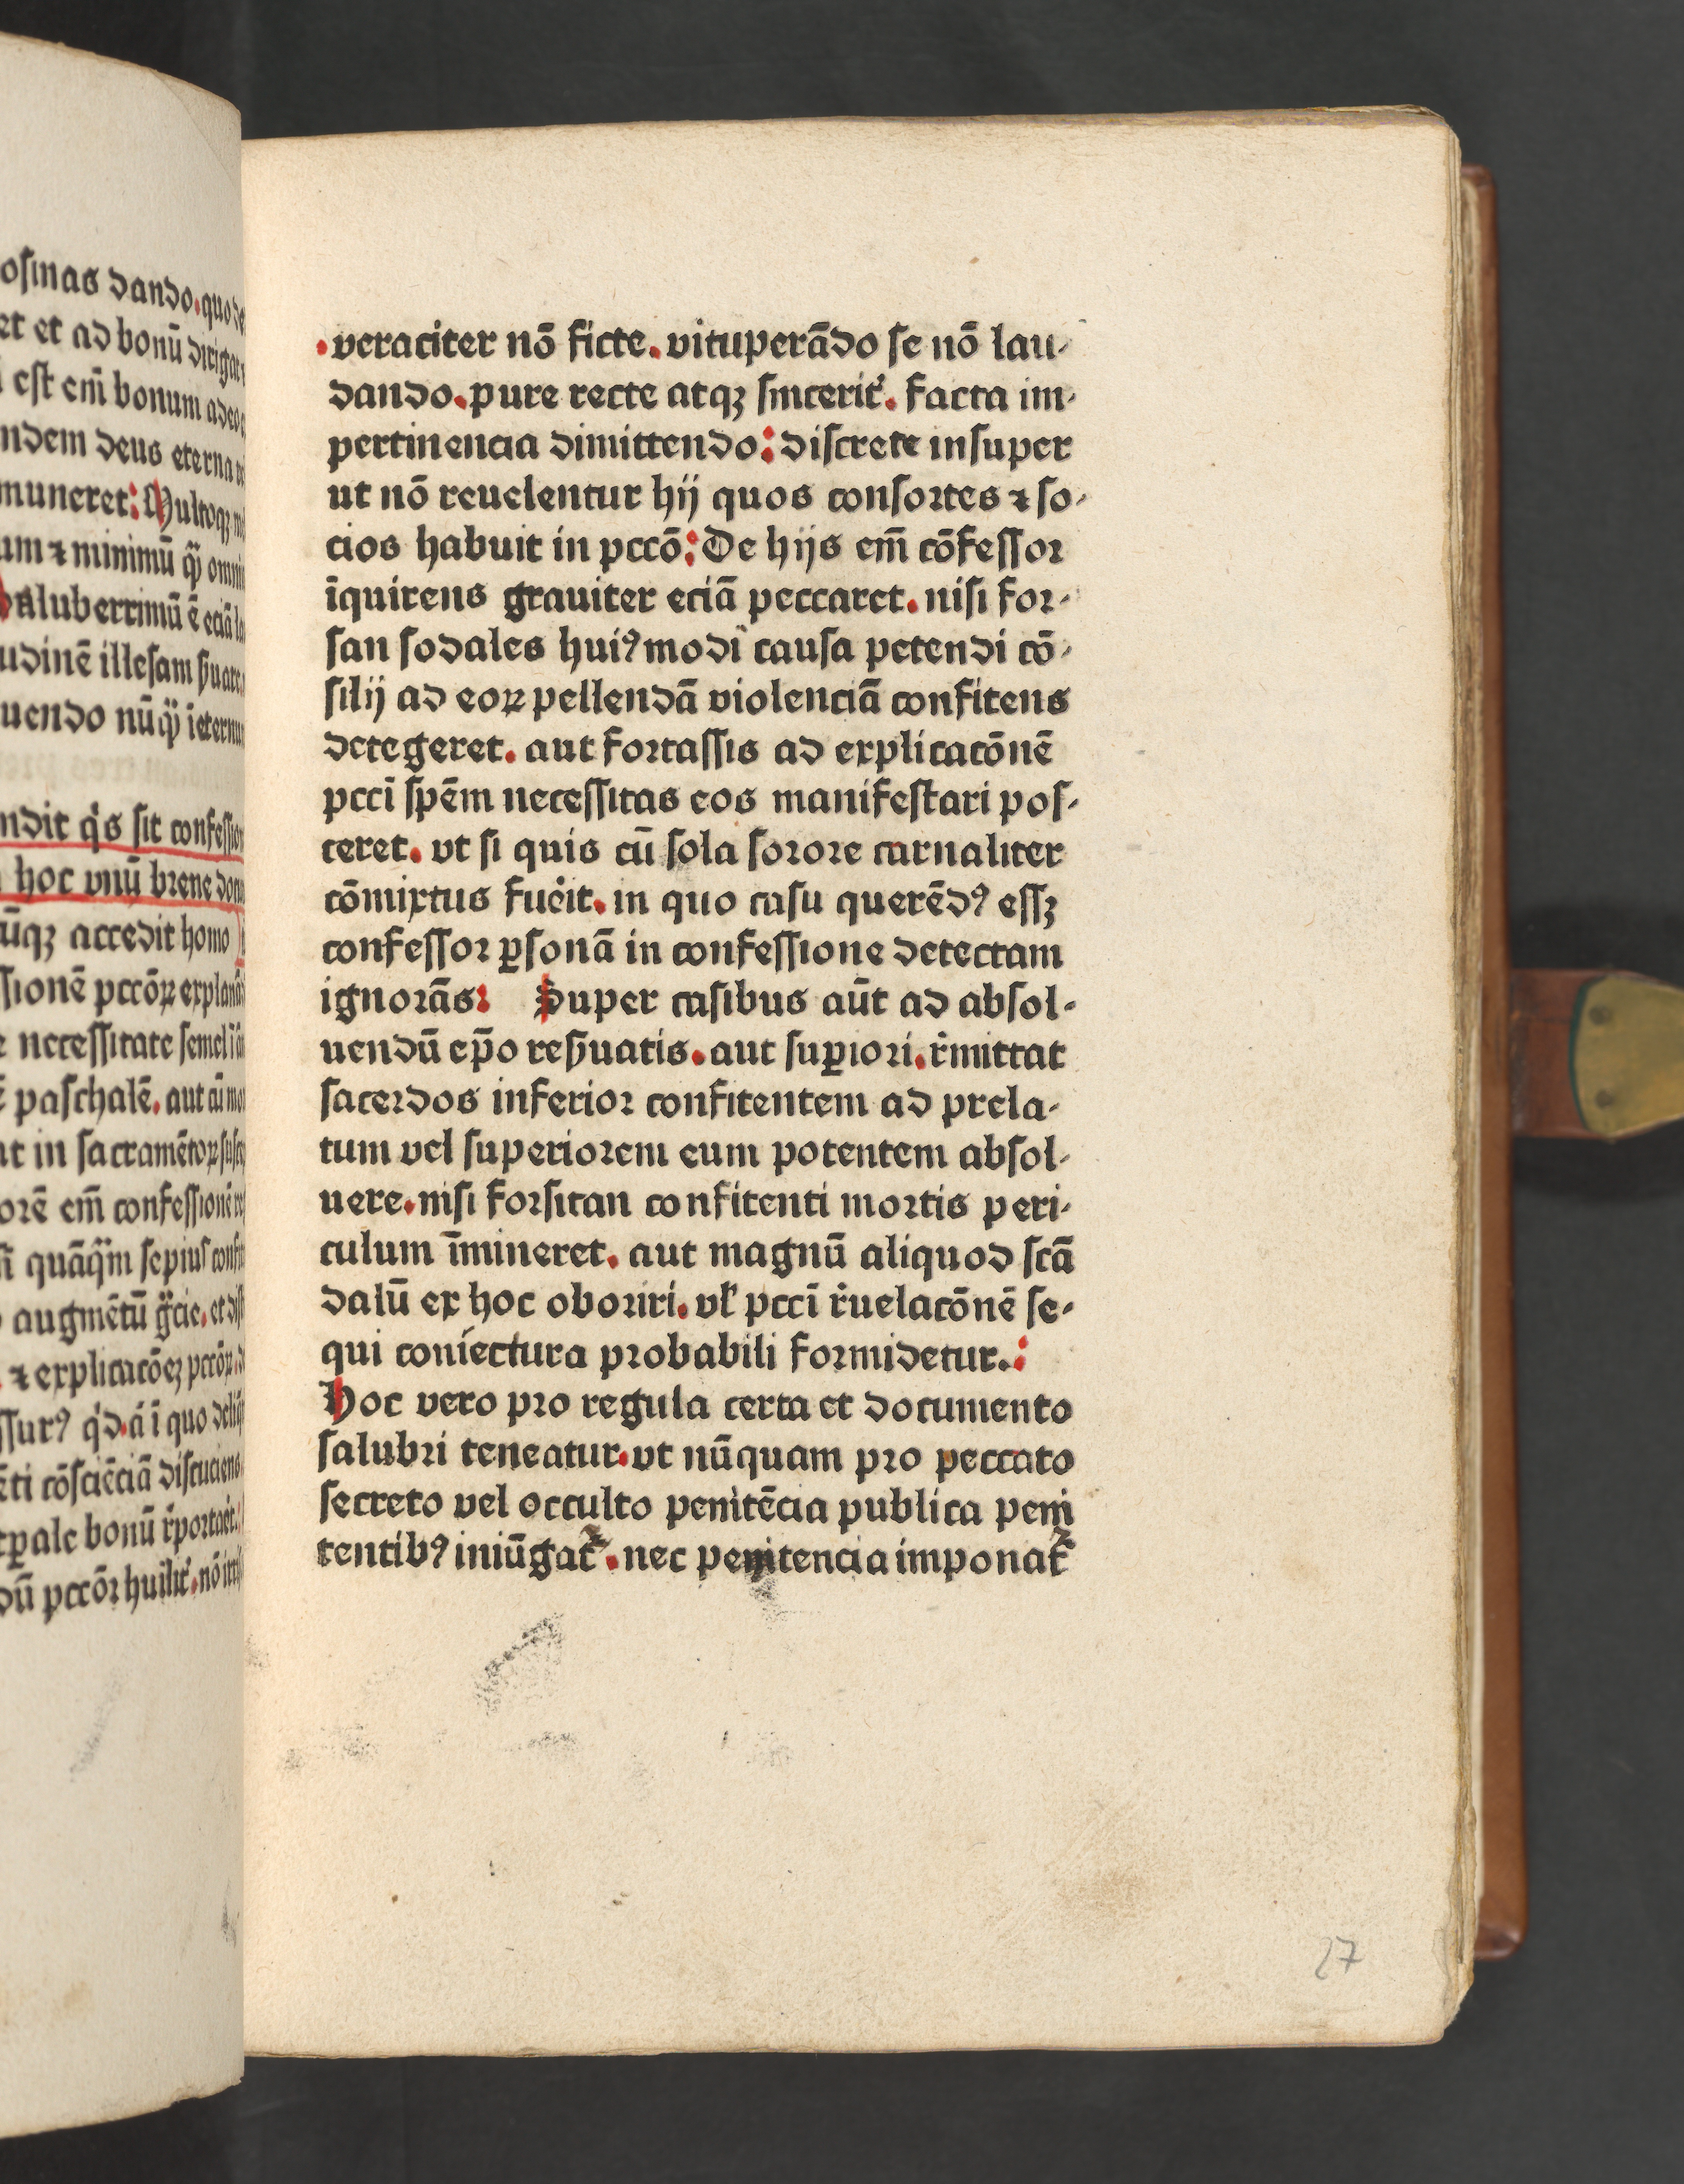 osinas dando. quo de
et et ad bonū dirigat
est em̄ bonum adeo
ndem deus eterna
muneret: Multoqꝫ
um ⁊ minimū
Saluberrimū ē eciā
udinē illesam
uendo
ndit sit confessio
hoc vnū breue
ūqꝫ accedit homo
ssionē pccōꝝ
necessitate semel
paschalē. aut
at in sacramētoꝝ
orē em̄ confessionē
sepius
augmētū
⁊
quo
cōsciēciā discuciens
bonū
dū pccōꝝ
veraciter nō ficte. vituperādo se nō lau⸗
dando. pure recte atqꝫ sincerit᷒. facta im⸗
pertinencia dimittendo: discrete insuper
ut nō reuelentur hij quos consortes ⁊ so⸗
cios habuit in pccō: De hijs em̄ cōfessor
īquirens grauiter eciā peccaret. nisi for⸗
san sodales hui⁹modi causa petendi cō⸗
silij ad eoꝝ pellendā violenciā confitens
detegeret. aut fortassis ad explicacōnē
pccī spēm necessitas eos manifestari pos⸗
ceret. vt si quis cū sola sorore carnaliter
cōmixtus fue͛it. in quo casu querēd⁹ essꝫ
confessor ꝑsonā in confessione detectam
ignorās: Super casibus aūt ad absol⸗
uendū ep̄o resꝰuatis. aut suꝑiori. r͛mittat
sacerdos inferior confitentem ad prela⸗
tum vel superiorem eum potentem absol⸗
uere. nisi forsitan confitenti mortis peri⸗
culum īmineret. aut magnū aliquod scā
dalū ex hoc oboriri. vl̕ pccī r͛uelacōnē se⸗
qui coniectura probabili formidetur.:
Hoc vero pro regula certa et documento
salubri teneatur. vt nūquam pro peccato
secreto vel occulto penitēcia publica peni
tentib⁹ iniūgat᷑. nec penitencia imponat᷑
27